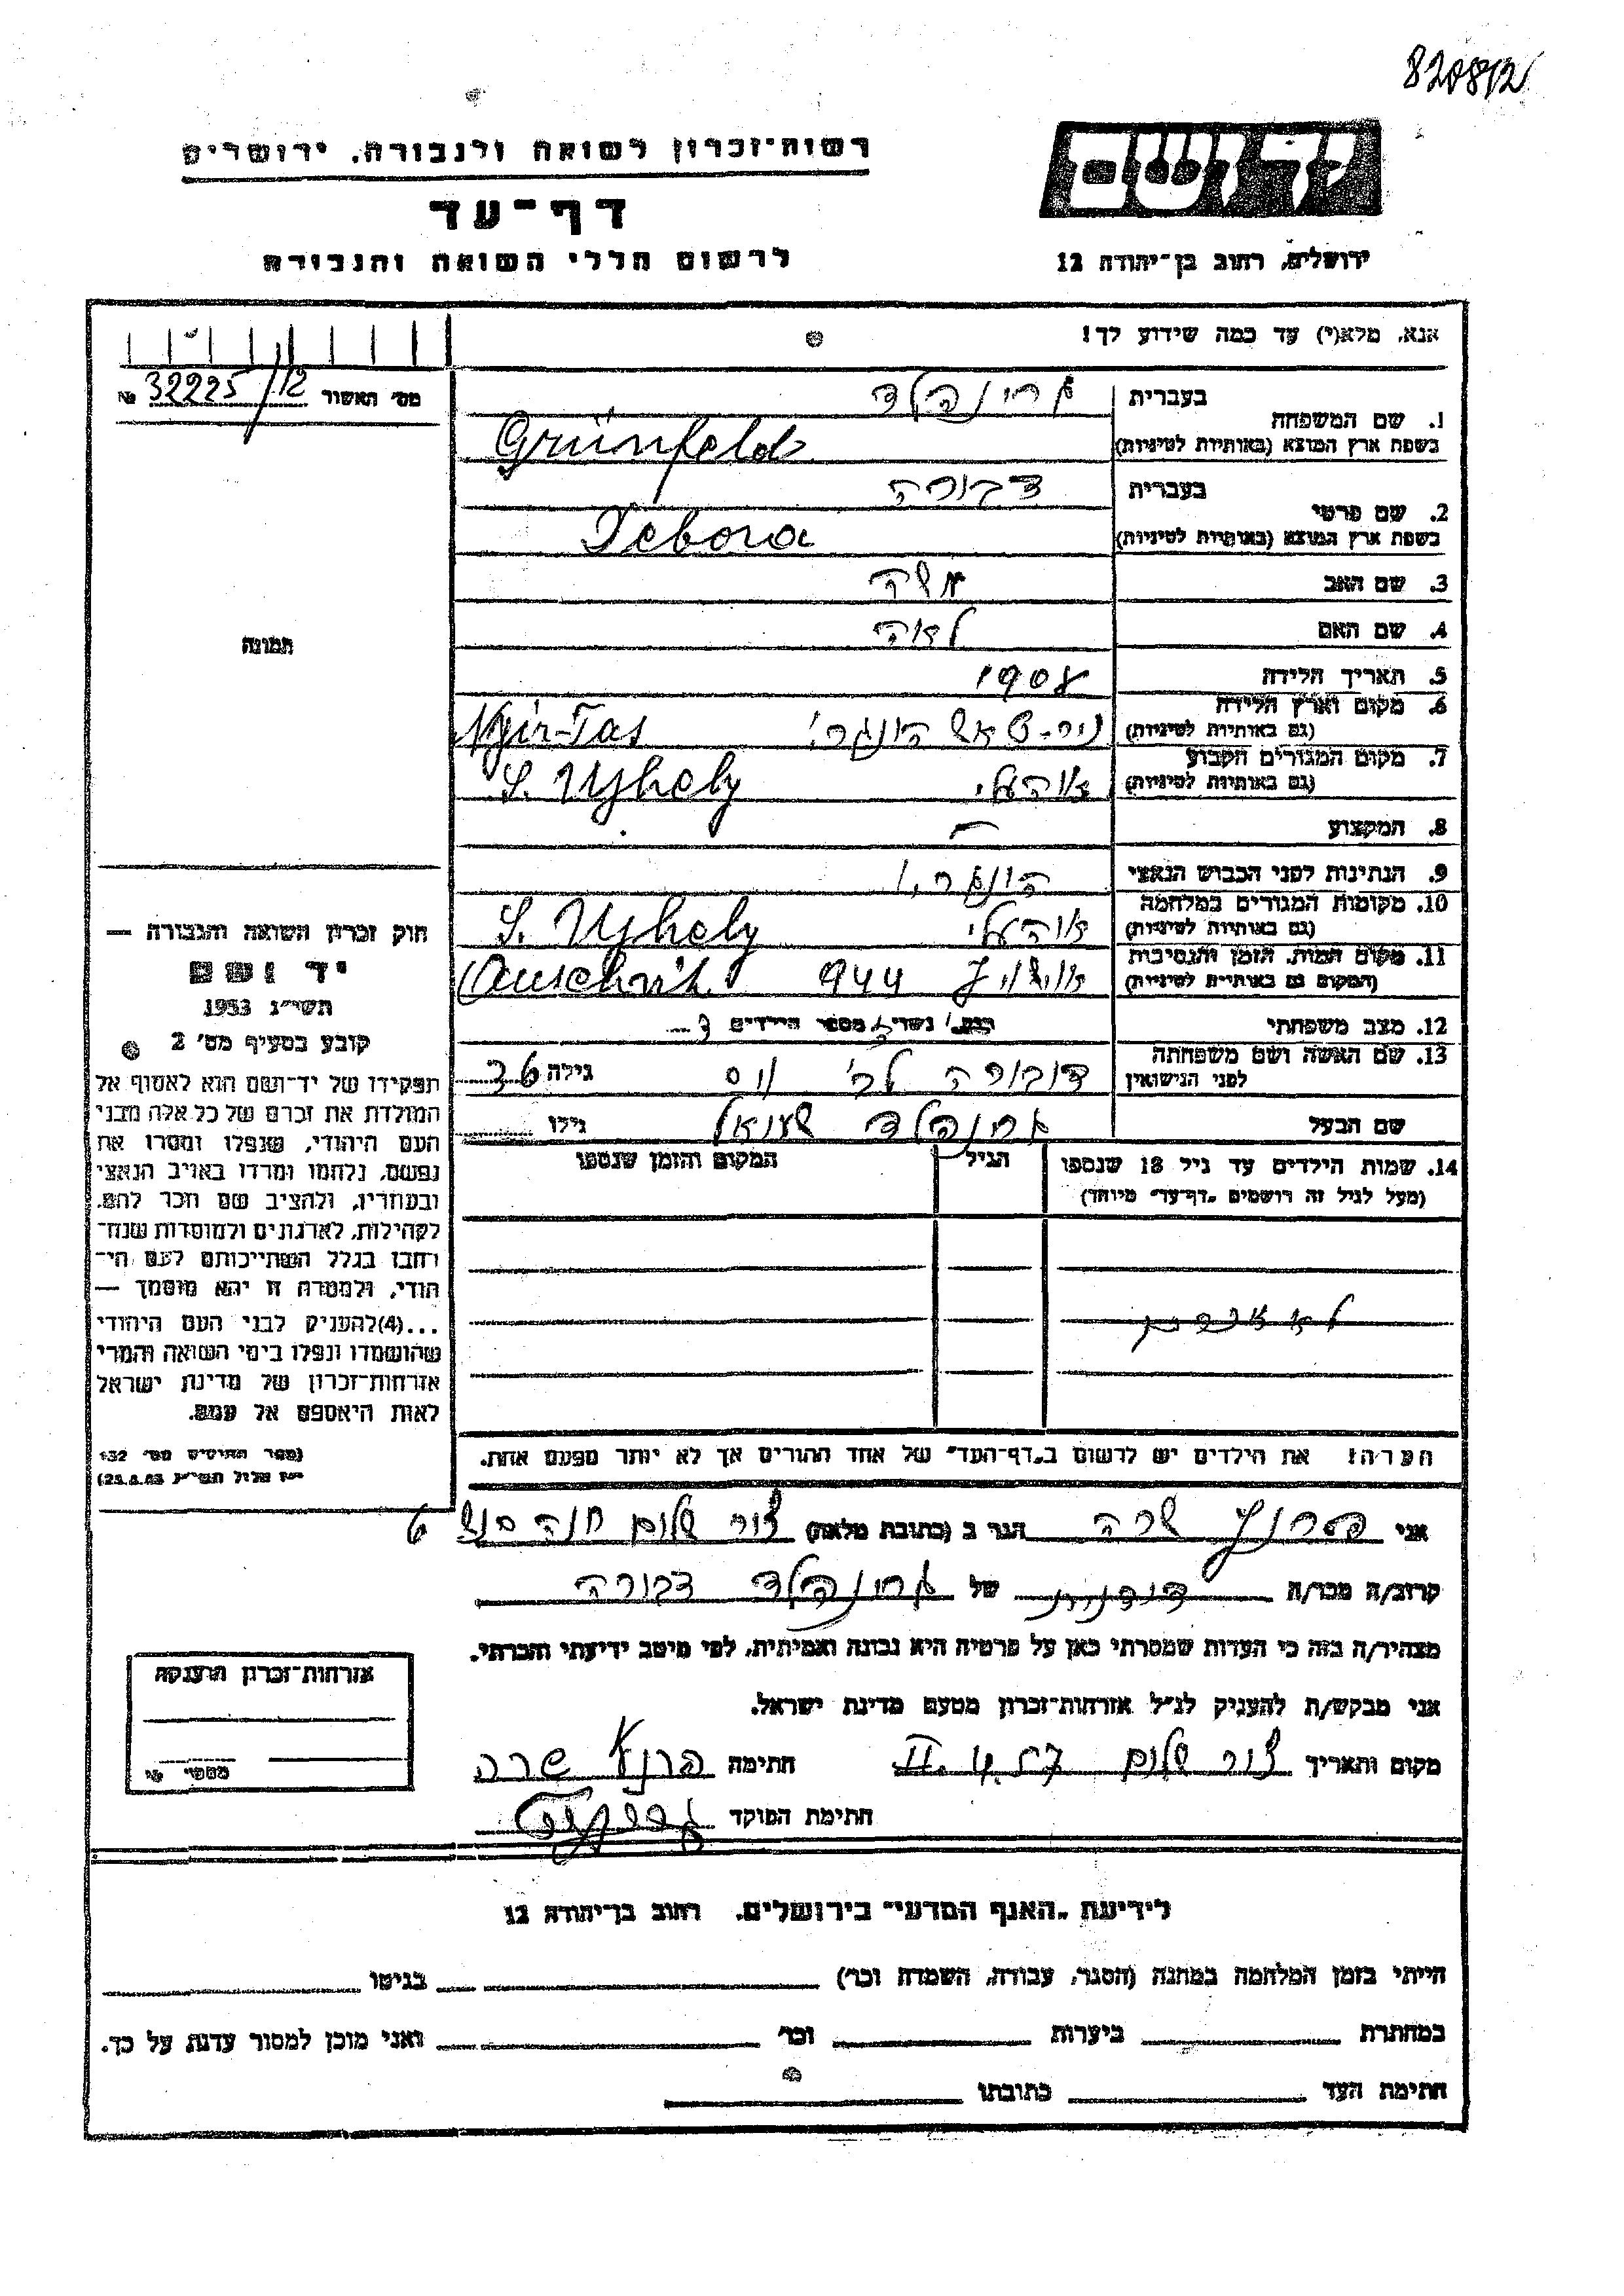 820812
רשות-זכרון לשואה ולגבורה, ירושלים
יד ושם
דף-עד
לרשום חללי השואה והגבורה
ירושלים, רחוב בן-יהודה 12
אנא, מלא(י) עד כמה שידוע לך!
מס' האשור 32225/12 №
1. שם המשפחה
בעברית גרינפלד
בשפת ארץ המוצא (באותיות לטיניות) Grünfeld
2. שם פרטי
בעברית דבורה
בשפת ארץ המוצא (באותיות לטיניות) Debora
3. שם האב משה
4. שם האם לאה
5. תאריך הלידה 1908
6. מקום וארץ הלידה (גם באותיות לטיניות) ניר-טאש הונגרי' Nyir-Tas
7. מקום המגורים הקבוע (גם באותיות לטיניות) אוהעלי S. Ujhely
8. המקצוע —
9. הנתינות לפני הכבוש הנאצי הונגרי'
10. מקומות המגורים במלחמה (גם באותיות לטיניות) אוהעלי S. Ujhely
11. מקום המות, הזמן והנסיבות (המקום גם באותיות לטיניות) אושויץ 944 Auschvitz
12. מצב משפחתי נשוי/אה מספר הילדים 3
13. שם האשה ושם משפחתה לפני הנישואין דבורה לב' וייס גילה 36
שם הבעל גרינפלד שמואל גילו
14. שמות הילדים עד גיל 18 שנספו (מעל לגיל זה רושמים "דף-עד" מיוחד) הגיל המקום והזמן שנספו
הערה! את הילדים יש לרשום ב"דף-העד" של אחד ההורים אך לא יותר מפעם אחת.
תמונה
חוק זכרון השואה והגבורה —
יד ושם
תשי"ג 1953
קובע בסעיף מס' 2
תפקידו של יד-ושם הוא לאסוף אל
המולדת את זכרם של כל אלה מבני
העם היהודי, שנפלו ומסרו את
נפשם, נלחמו ומרדו באויב הנאצי
ובעוזריו, ולהציב שם וזכר להם,
לקהילות, לארגונים ולמוסדות שנח-
רבו בגלל השתייכותם לעם הי-
הודי, ולמטרה זו יהא מוסמך —
...(4)להעניק לבני העם היהודי
שהושמדו ונפלו בימי השואה והמרי
אזרחות-זכרון של מדינת ישראל
לאות היאספם אל עמם.
(ספר החוקים מס' 132
י"ז אלול תשי"ג 28.8.53)
אני שרה הגר ב (כתובת מלאה) צור שלום חנה סנש 6
קרוב/ה מכר/ה של גרינפלד דבורה
מצהיר/ה בזה כי העדות שמסרתי כאן על פרטיה היא נכונה ואמיתית, לפי מיטב ידיעתי והכרתי.
אני מבקש/ת להעניק לנ"ל אזרחות-זכרון מטעם מדינת ישראל.
מקום ותאריך צור שלום חתימה שרה
חתימת הפוקד
אזרחות-זכרון הוענקה
מספר
לידיעת "האגף המדעי" בירושלים, רחוב בן-יהודה 12
הייתי בזמן המלחמה במחנה (הסגר, עבודה, השמדה וכו') בגיטו
במחתרת ביערות וכו' ואני מוכן למסור עדות על כך.
חתימת העד כתובתו